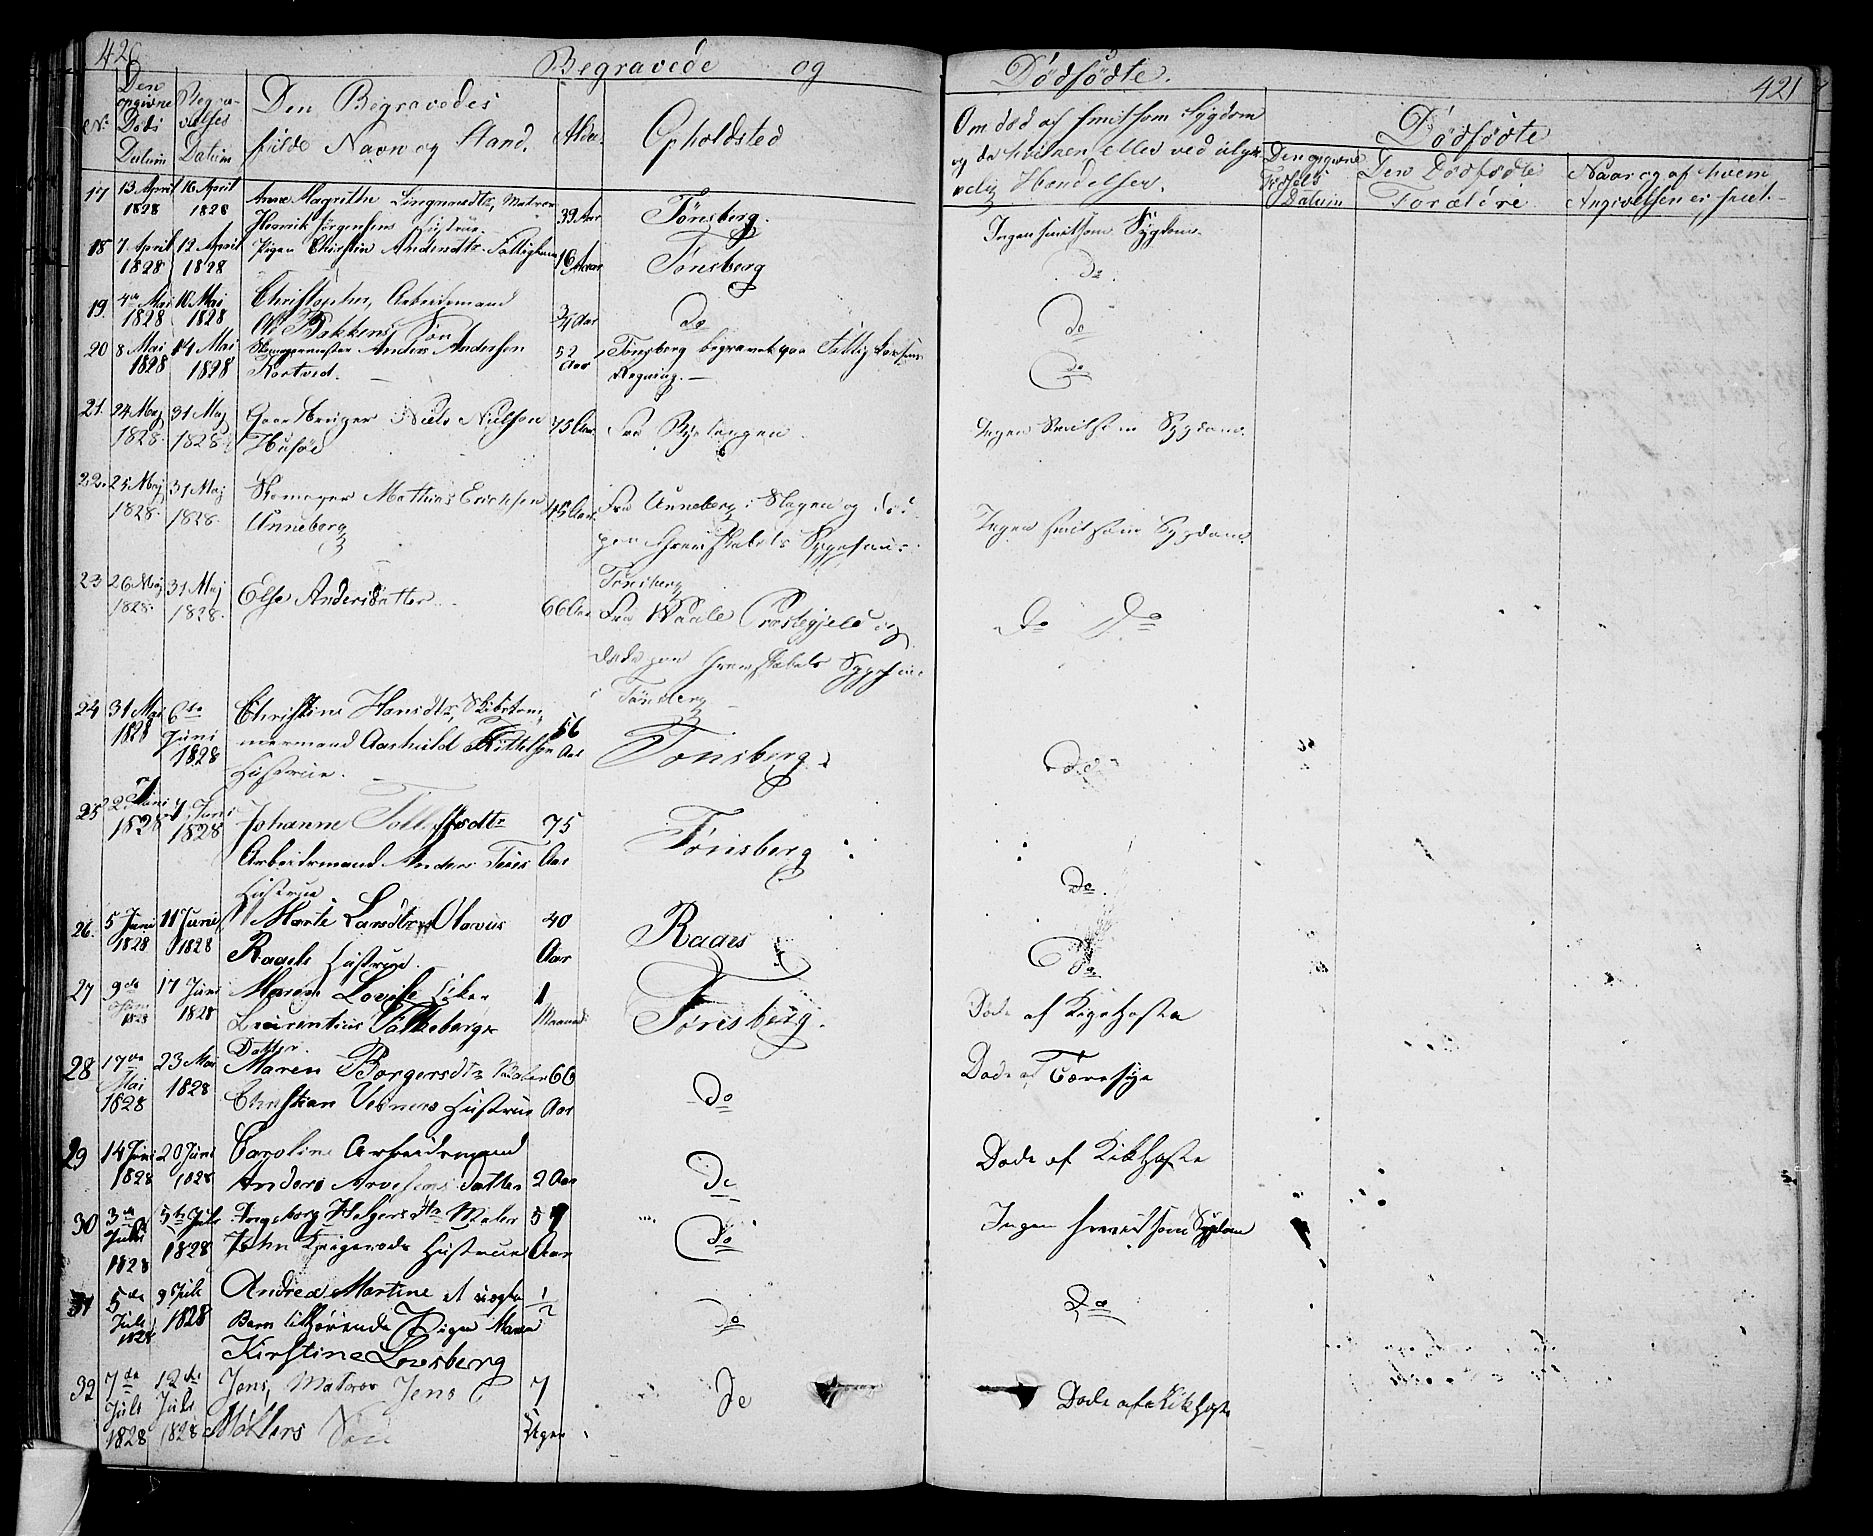 420
Begravede og
Dødfødte.
421
No
Den opgivne Døds Datum
Begravelses Datum
Den Begravedes
fulde Navn og Stand.
Alder.
Opholdsted
Om død af smitsom Sygdom
og da hvilken, eller ved ulyk-
kelig Hændelser.
Dødfødte
Den opgivne Fødsels Datum
Den Dødfødtes
Forældre
Naar og af hvem
Angivelsen er skeet.
17 13 April 1828 16 April 1828 Anne Magrethe Matros
Henrik Jørgensens Hustrue. 39 Aar Tønsberg. Ingen smitsom Sygdom.
18 7 April 1828 12 April 1828 Pigen Christin Andersdtr Fattiglem 16 Aar Tønsberg do.
19 4de Mai 1828 10 Mai 1828 Christopher, Arbeidsmand
Ol Bakkens Søn 3/4 Aar do do
20 8 Mai 1828 14 Mai 1828 Skomagermester Anders Andersen
Kortved. 52 Aar Tønsberg begravet paa Fattig Kassens
Regning. do
21. 24 Maj 1828. 31 Maj 1828 Niels Nielsen
Husøe 75 Aar. Fra Ingen Smitsom Sygdom.
22. 25 Maj 1828. 31 Maj 1828. Skomager Mathias Ericksen
Unneberg 45 Aar. Fra Unneberg i Slagen og død
paa Grevskabets Sygehuus
Tønsberg Ingen smitsom Sygdom.
23 26 Maj 1828. 31 Maj 1828. Else Andersdatter 66 Aar Fra Waale Præstegjeld og
døde paa Grevskabets Sygehuus
i Tønsberg do do
24 31 Mai 1828 6te Juni 1828 Christine Hansdtr, Skibstøm-
mermand Aashuld Kittelsen
Hustrue. 56 Aar Tønsberg. do
25 2 Juni 1828 7 Juni 1828 Johanne Tollefsdtr
Arbeidsmand Anders
Hustrue 75 Aar Tønsberg do.
26. 5 Juni 1828 11 Juni 1828 Marte Larsdtr Olavus
Raaels Hustrue. 40 Aar Raaes do
27 9de Juni 1828 17 Juni 1828 Maren Lovise
Laurentius Falkebergs
Datter. 1 Maaned Tønsberg. Døde af Kighoste
28 17de Mai 1828 23 Mai 1828 Maren Borgersdtr Maler
Christian Hustrue 66 Aar do Døde af Tæresyge
29 14 Juni 1828 20 Juni 1828 Caroline Arbeidsmand
Anders Arvesens Datter 2 Aar do Døde af Kikhoste
30 3de Juli 1828 5te Juli 1828 Ingeborg Holgersdtr Maler
John Hustrue 59 Aar do Ingen smidsom Sygdom
31 5de Juli 1828 9 Juli 1828 Andrea Martine et uægte
Barn tilhørende Pigen Maren
Kirstine Lovsberg 1/2 do do
32 7de Juli 1828 12de Juli 1828 Jens, Matros Jens
Møllers Søn 7 Uger do Døde af Kikhoste